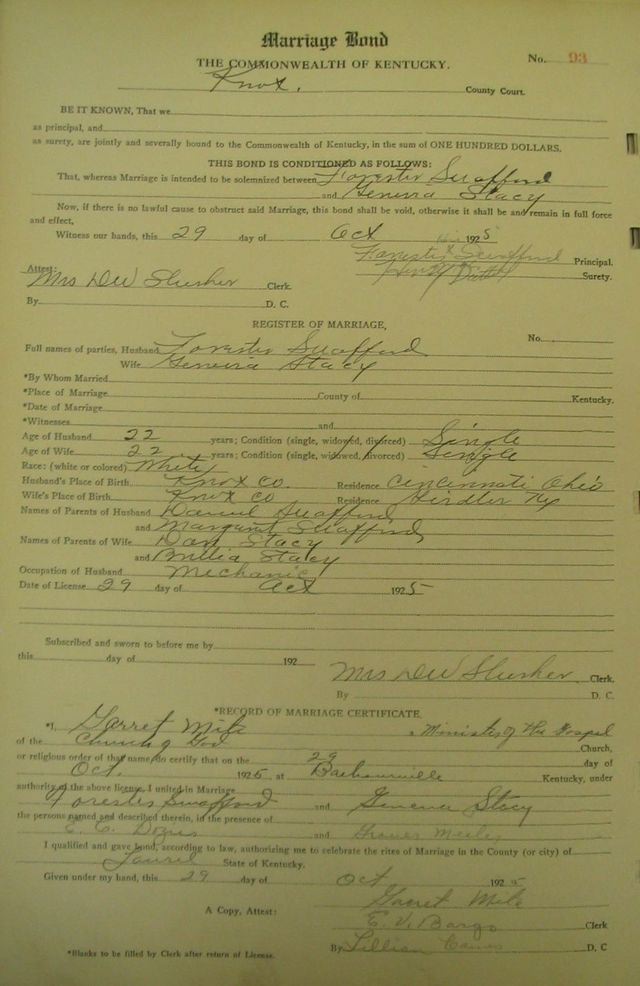 Marriage Bond
THE COMMONWEALTH OF KENTUCKY. No. 93
Knox. County Court.
BE IT KNOWN, That we
as principal, and
as surety, are jointly and severally bound to the Commonwealth of Kentucky, in the sum of ONE HUNDRED DOLLARS.
THIS BOND IS CONDITIONED AS FOLLOWS:
That, whereas Marriage is intended to be solemnized between Forester Swafford
and Stacy
Now, if there is no lawful cause to obstruct said Marriage, this bond shall be void, otherwise it shall be and remain in full force
and effect,
Witness our hands, this 29 day of Oct 1925
Forester Swafford Principal.
Surety.
Attest:
Mrs DW Slusher Clerk.
By D. C.
REGISTER OF MARRIAGE,
No.
Full names of parties, Husband Forester Swafford
Wife Stacy
*By Whom Married
*Place of Marriage County of Kentucky.
*Date of Marriage
*Witnesses and
Age of Husband 22 years; Condition (single, widowed, divorced) Single
Age of Wife 22 years; Condition (single, widowed, divorced) Single
Race: (white or colored) White
Husband's Place of Birth Knox Co. Residence Cincinnati Ohio
Wife's Place of Birth Knox Co Residence Hindler Ky
Names of Parents of Husband Daniel Swafford
and Margaret Swafford
Names of Parents of Wife Dan Stacy
and Stacy
Occupation of Husband Mechanic
Date of License 29 day of Oct 1925
Subscribed and sworn to before me by
this day of 192
Mrs DW Slusher Clerk.
By D. C.
*RECORD OF MARRIAGE CERTIFICATE.
*I, Garret Mile a Minister of the Gospel
of the Church of God Church,
or religious order of that name, do certify that on the 29 day of
Oct. 1925 at Kentucky, under
authority of the above license, I united in Marriage
Forester Swafford and Stacy
the persons named and described therein, in the presence of
E. C. and
I qualified and gave bond, according to law, authorizing me to celebrate the rites of Marriage in the County (or city) of
Laurel State of Kentucky.
Given under my hand, this 29 day of Oct 1925
Garret Mile
A Copy, Attest: E. V. Bargo Clerk
By Lillian D. C
*Blanks to be filled by Clerk after return of License.